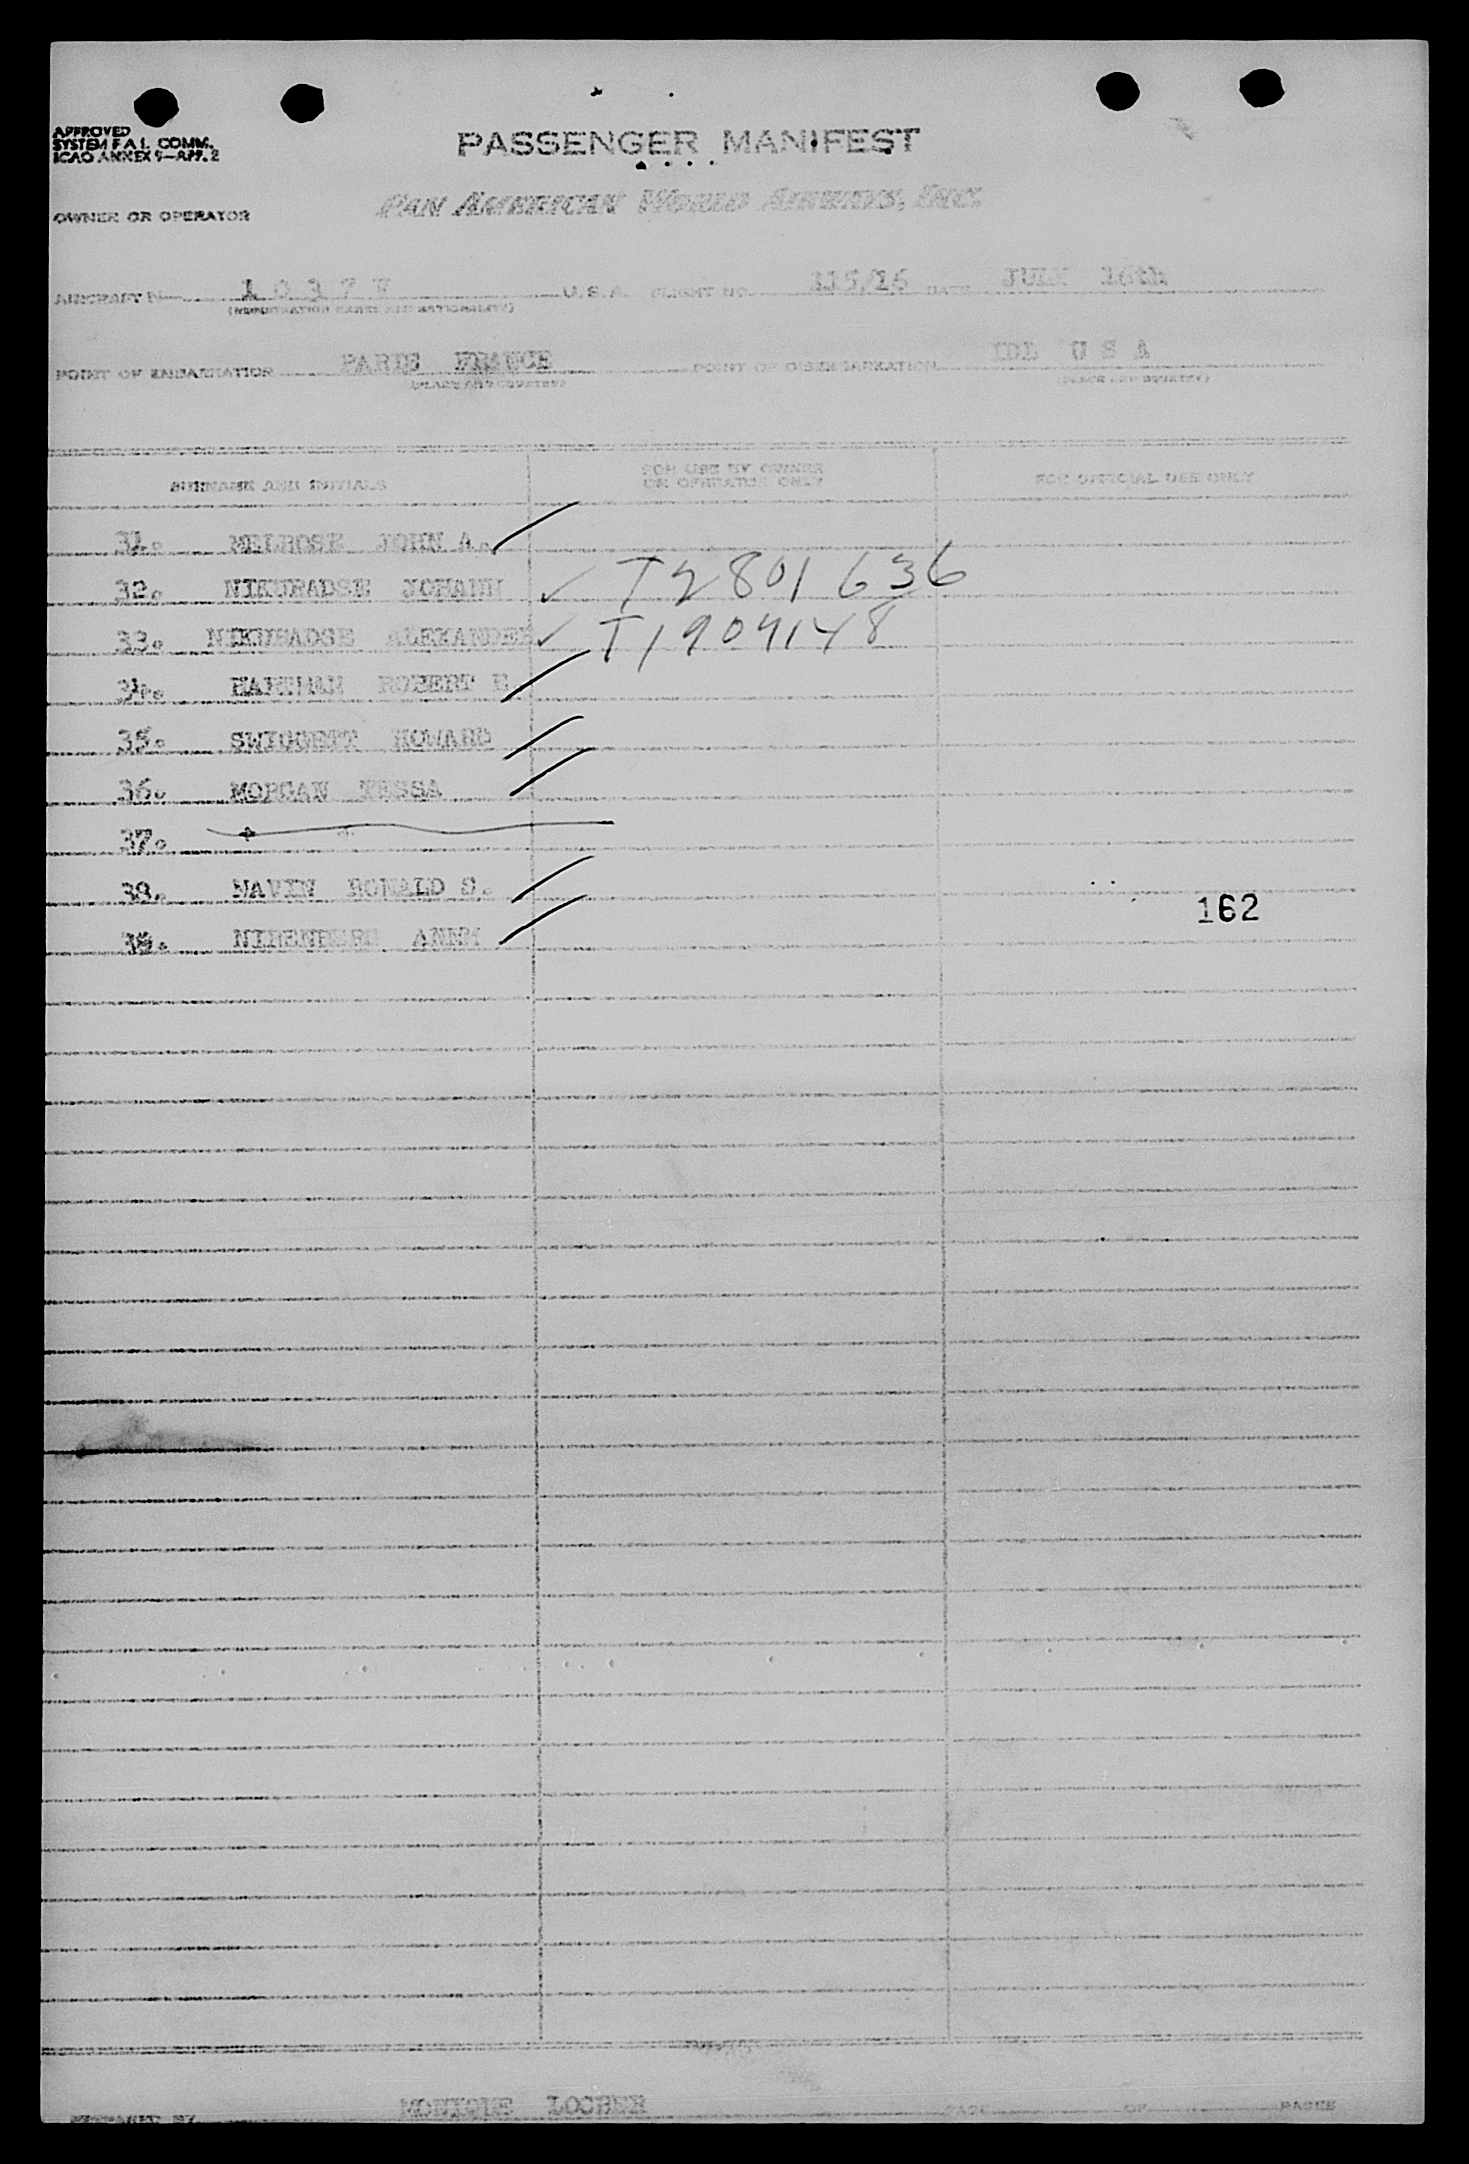 APPROVED
SYSTEM F A L COMM.
ICAO ANNEX 9—APP. 2
PASSENGER MANIFEST
OWNER OR OPERATOR PAN AMERICAN WORLD AIRWAYS, INC.
AIRCRAFT U. S. A. FLIGHT NO. 115/16 DATE JULY 16th
(REGISTRATION MARKS AND NATIONALITY)
POINT OF EMBARKATION PARIS FRANCE POINT OF DISEMBARKATION IDL U S A
(PLACE AND COUNTRY) (PLACE AND COUNTRY)
SURNAME AND INITIALS FOR USE BY OWNER OR OPERATOR ONLY FOR OFFICIAL USE ONLY
31. MELROSE JOHN A.
32. NIKURADSE JOHANN T2801636
33. NIKURADSE ALEXANDER T1904148
34. HARTMAN ROBERT
35. SWIGGETT HOWARD
36. MORGAN TESSA
37.
38. MAVIN RONALD S.
162
39. ANNE
MONIQUE LOCHER
PREPARED BY PAGE OF PAGES